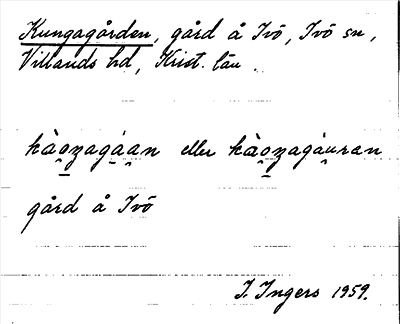 Kungagården, gård å Ivö, Ivö sn,
Villands hd, Krist. län.
kào̯ŋagá̯a̯n eller kào̯ŋagáu̯ran
gård å Ivö
I. Ingers 1959.